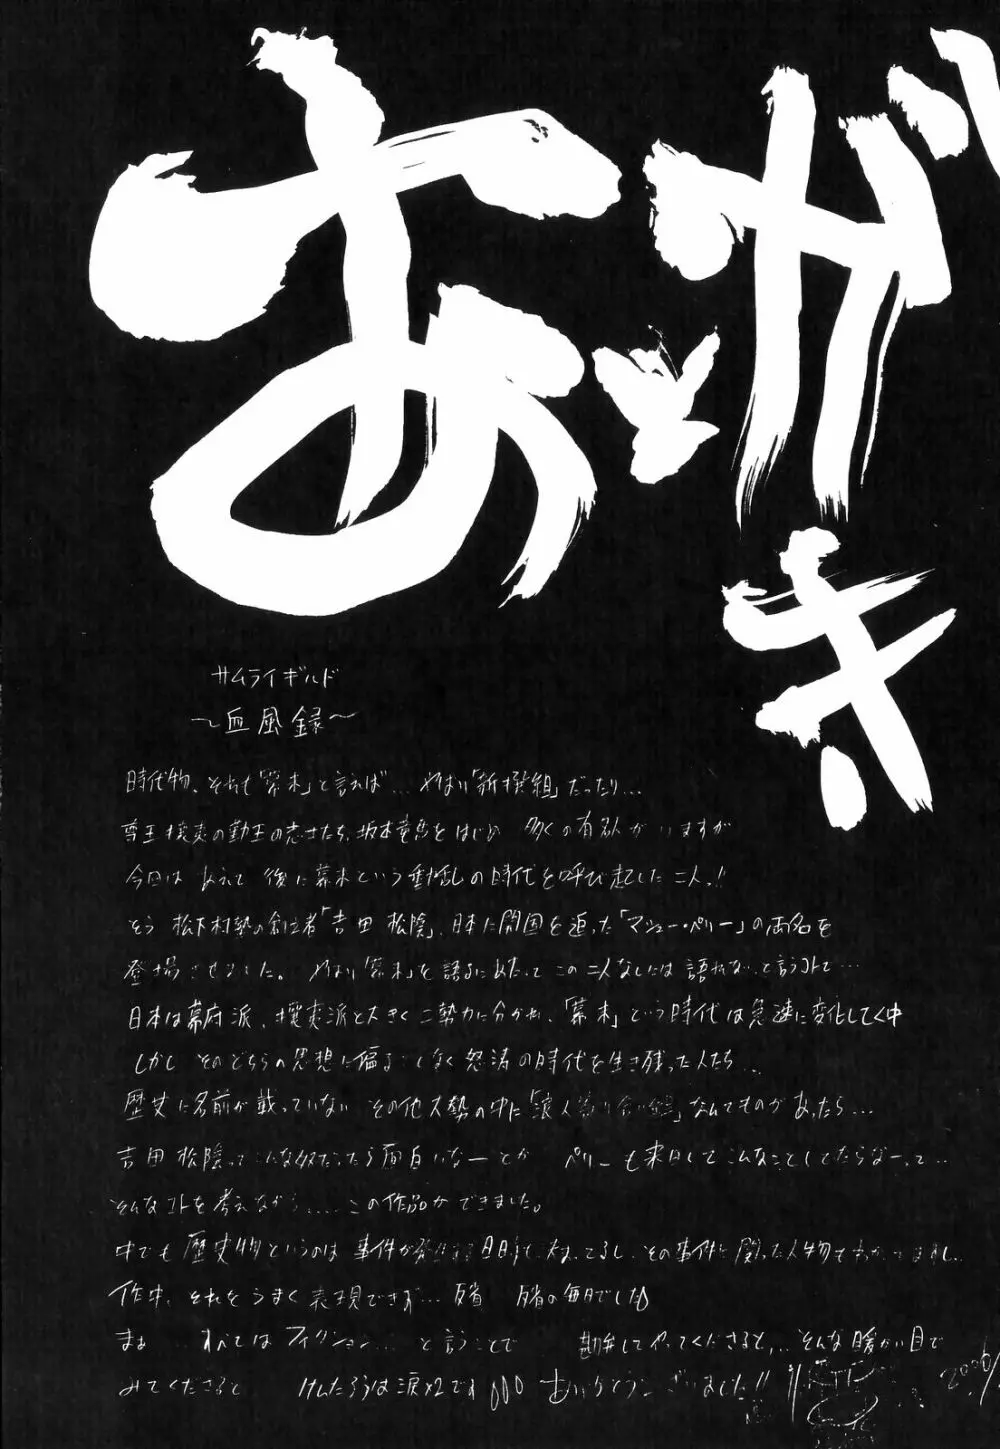 あとがき
サムライギルド
～血風録～
時代物、それも「幕末」と言えば…やはり「新撰組」だったり…
尊王攘夷の勤王の志士たち、坂本竜馬をはじめ 多くの有名がいますが
今回は あえて 後に幕末という動乱の時代を呼び起した二人!!
そう 松下村塾の創立者「吉田 松陰」、日本に開国を迫った「マシュー・ペリー」の両名を
登場させました。やはり「幕末」を語るにあたってこの二人なしには語れないと言うコトで…
日本は幕府派、攘夷派と大きく二勢力に分かれ、「幕末」という時代は急速に変化してく中
しかし そのどちらの思想に偏ることなく怒涛の時代を生き残った人たち…
歴史に名前が載っていない その他大勢の中に「浪人」なんてものがあったら…
吉田 松陰ってこんな奴だったら面白いなーとか ペリーも来日してこんなことしてたらなーって…
そんなコトを考えながら....この作品ができました。
中でも 歴史物というのは 事件が 日時も決まってるし、その事件に関った人物も
作中、それをうまく表現できず…反省 反省の毎日でした
まぁ…すべてはフィクション…と言うことで 勘弁してやってくださると...そんな暖かい目で
みてくださると けんたろうは涙×2です ありがとうございました!!